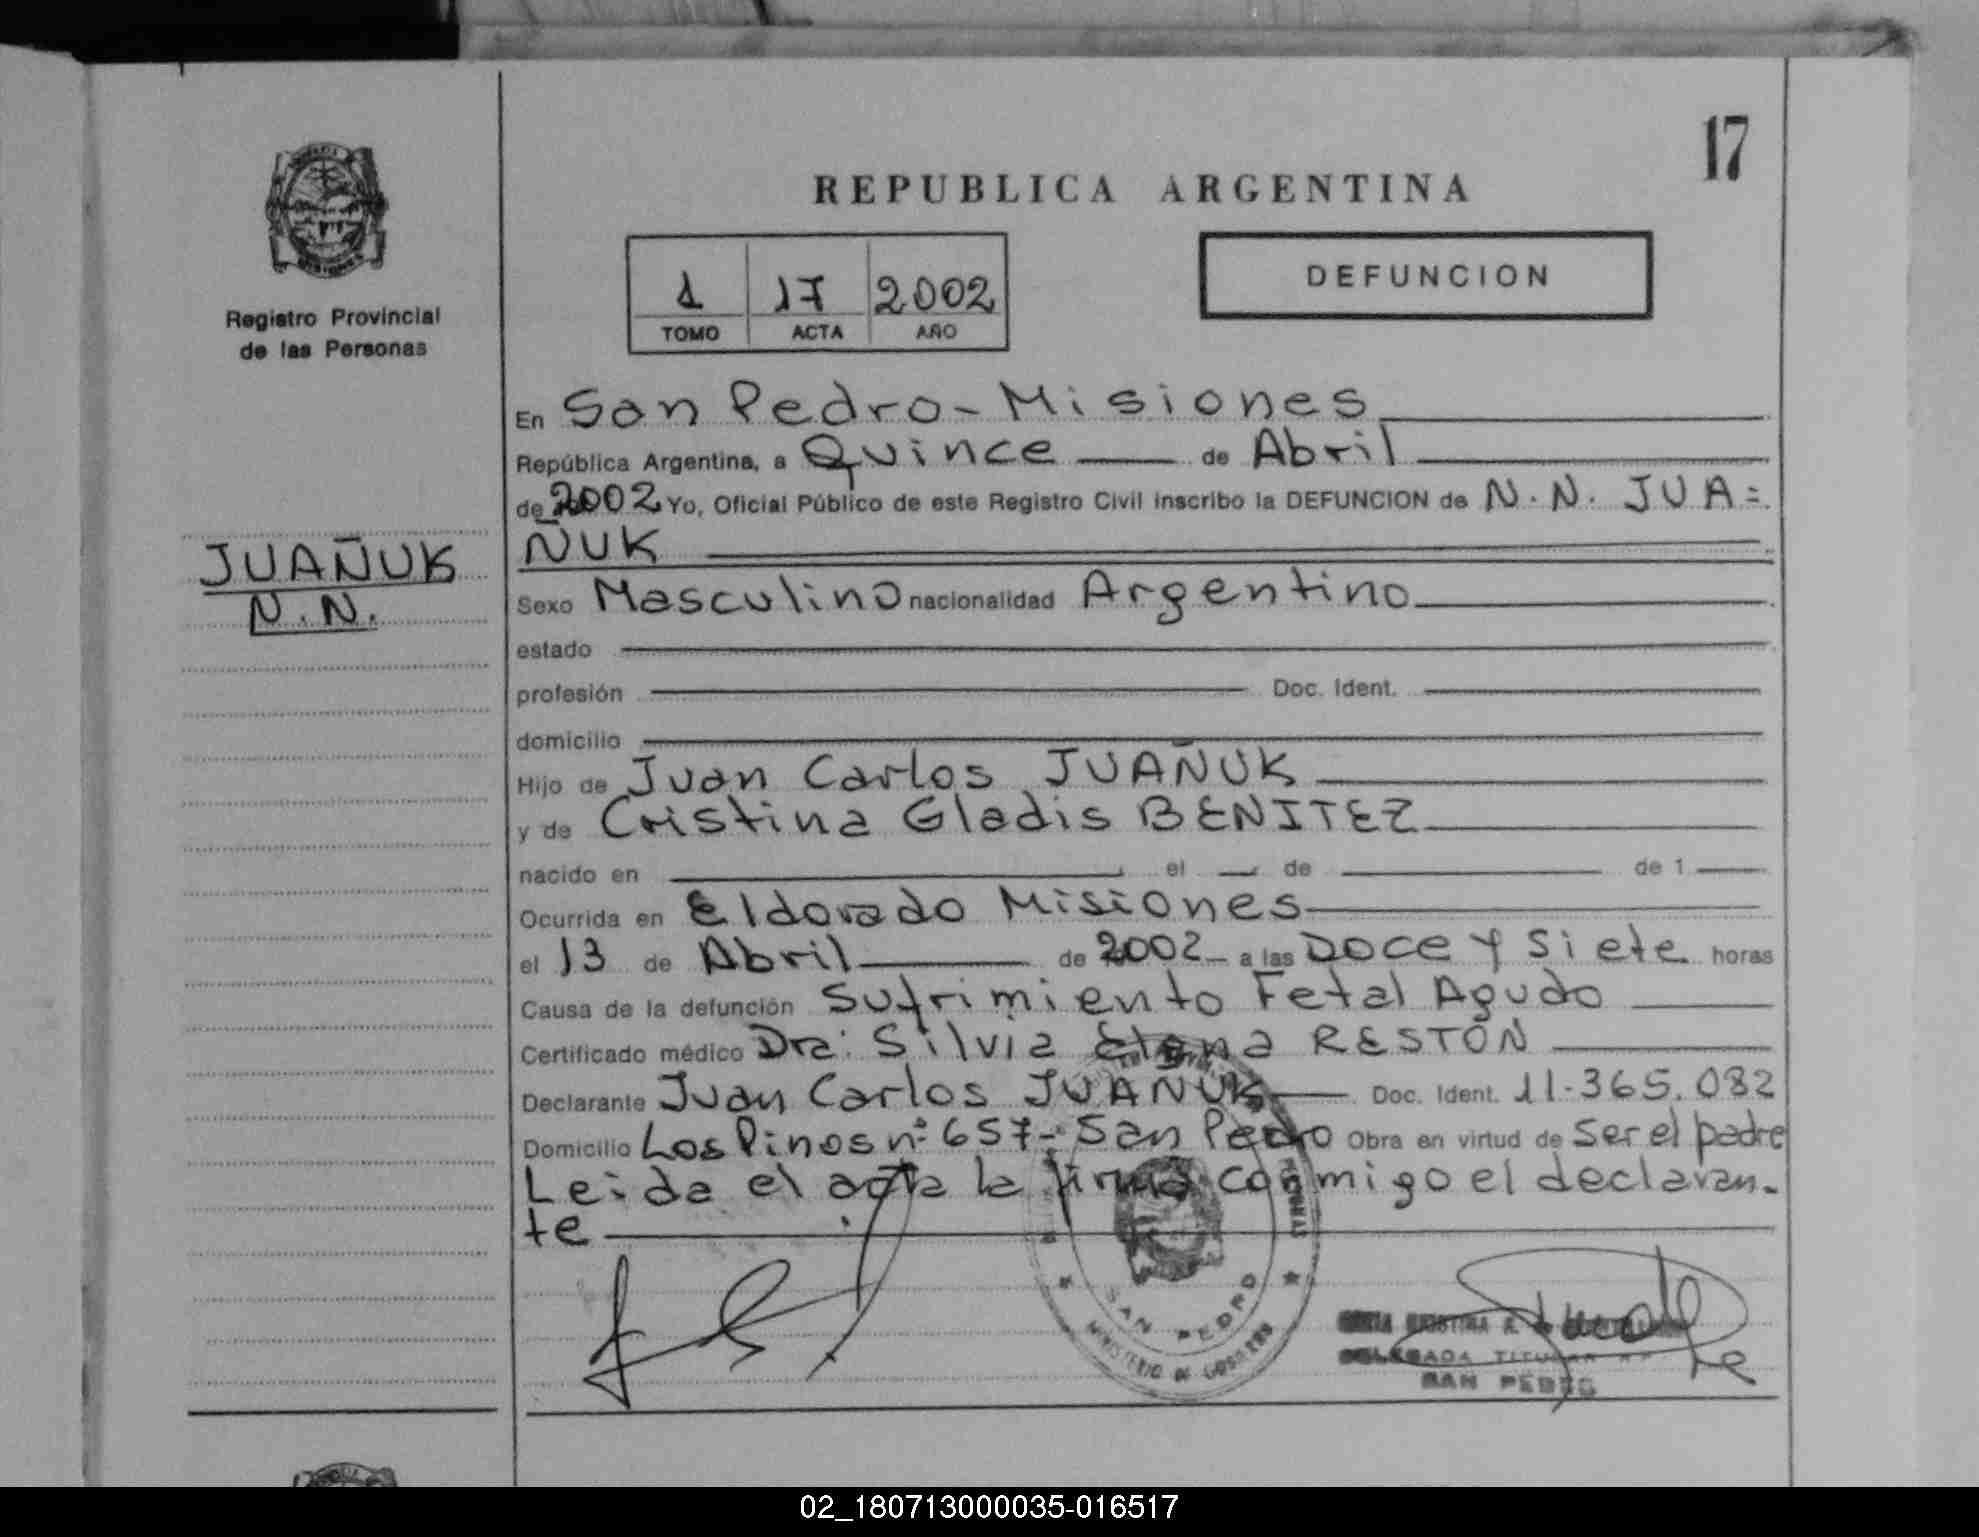 17
REPUBLICA ARGENTINA
1 17 2002
TOMO ACTA AÑO
DEFUNCION
MISIONES
Registro Provincial
de las Personas
JUAÑUK
N.N.
En San Pedro - Misiones
República Argentina, a Quince de Abril
de 2002 Yo, Oficial Público de este Registro Civil inscribo la DEFUNCION de N.N. JUA=
ÑUK
Sexo Masculino nacionalidad Argentino
estado
profesión Doc. Ident.
domicilio
Hijo de Juan Carlos JUAÑUK
y de Cristina Gladis BENITEZ
nacido en el de de 1
Ocurrida en Eldorado Misiones
el 13 de Abril de 2002 a las Doce y Siete horas
Causa de la defunción Sufrimiento Fetal Agudo
Certificado médico Dra: Silvia Elena RESTÓN
Declarante Juan Carlos JUAÑUK Doc. Ident. 11.365.082
Domicilio Los Pinos nº 657 - San Pedro Obra en virtud de Ser el padre
Leida el acta la firma conmigo el declaran-
te
SAN PEDRO
MINISTERIO DE GOBIERNO
DELEGADA TITULAR
SAN PEDRO
02_180713000035-016517